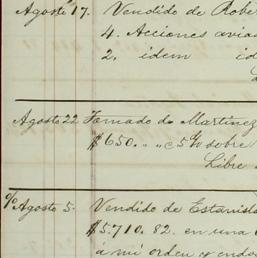 Agosto 17. Vendido de Robe
4. Acciones avia
2. idem id
Agosto 22 Tomado de Martinez
$650. " " c 5% sobre
Libre
% Agosto 5. Vendido de Estanisla
$5.710. 82. en una
á mi orden y endos